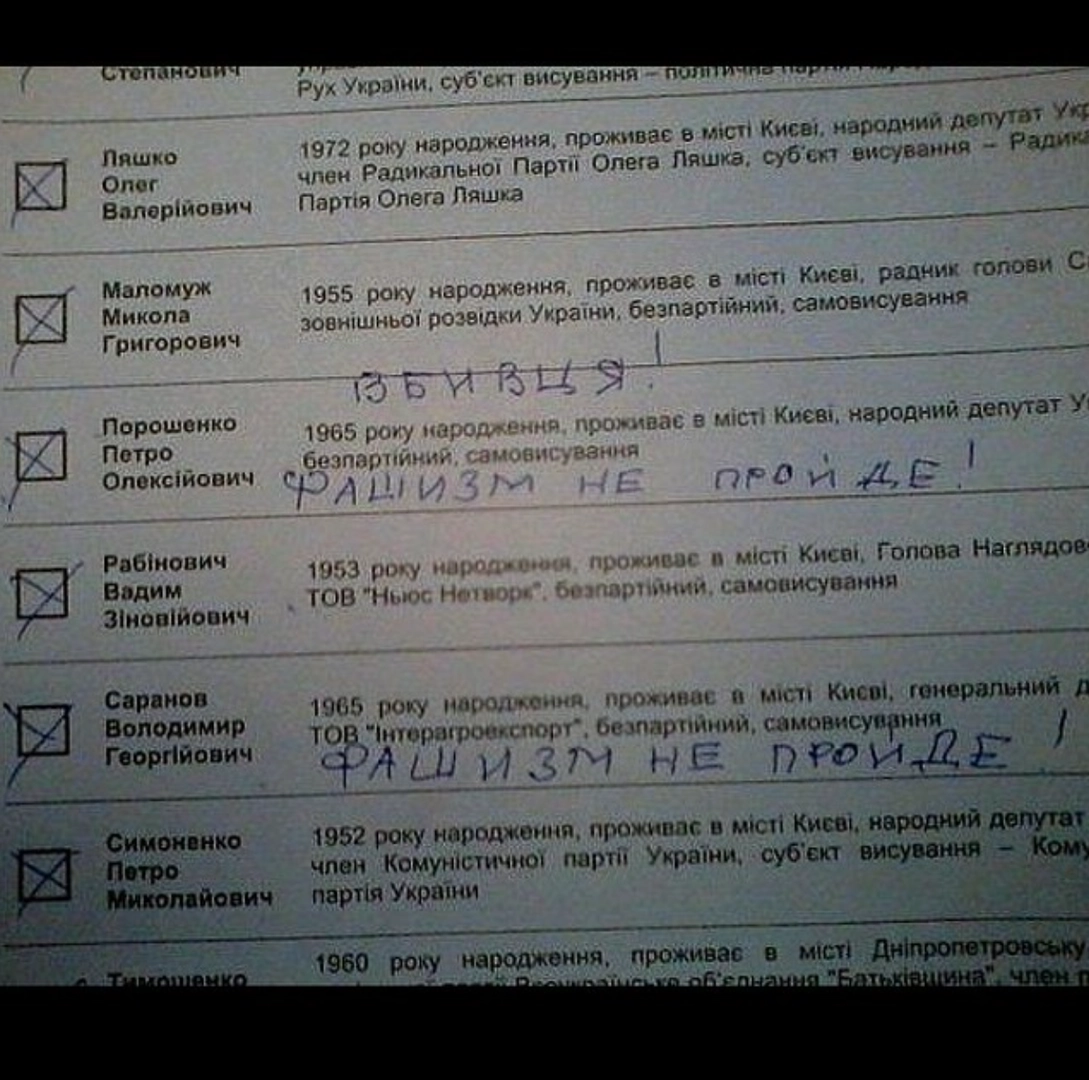 Степанович
Рух України, суб'єкт висування – політична партія
Ляшко
Олег
Валерійович
1972 року народження, проживає в місті Києві, народний депутат Укр
член Радикальної Партії Олега Ляшка, суб'єкт висування – Радика
Партія Олега Ляшка
Маломуж
Микола
Григорович
1955 року народження, проживає в місті Києві, радник голови С
зовнішньої розвідки України, безпартійний, самовисування
ВБИВЦЯ!
Порошенко
Петро
Олексійович
1965 року народження, проживає в місті Києві, народний депутат У
безпартійний, самовисування
ФАШИЗМ НЕ ПРОЙДЕ!
Рабінович
Вадим
Зіновійович
1953 року народження, проживає в місті Києві, Голова Наглядово
ТОВ "Ньюс Нетворк", безпартійний, самовисування
Саранов
Володимир
Георгійович
1965 року народження, проживає в місті Києві, генеральний д
ТОВ "Інтерагроекспорт", безпартійний, самовисування
ФАШИЗМ НЕ ПРОЙДЕ!
Симоненко
Петро
Миколайович
1952 року народження, проживає в місті Києві, народний депутат
член Комуністичної партії України, суб'єкт висування – Кому
партія України
Тимошенко
1960 року народження, проживає в місті Дніпропетровську
Всеукраїнське об'єднання "Батьківщина", член п